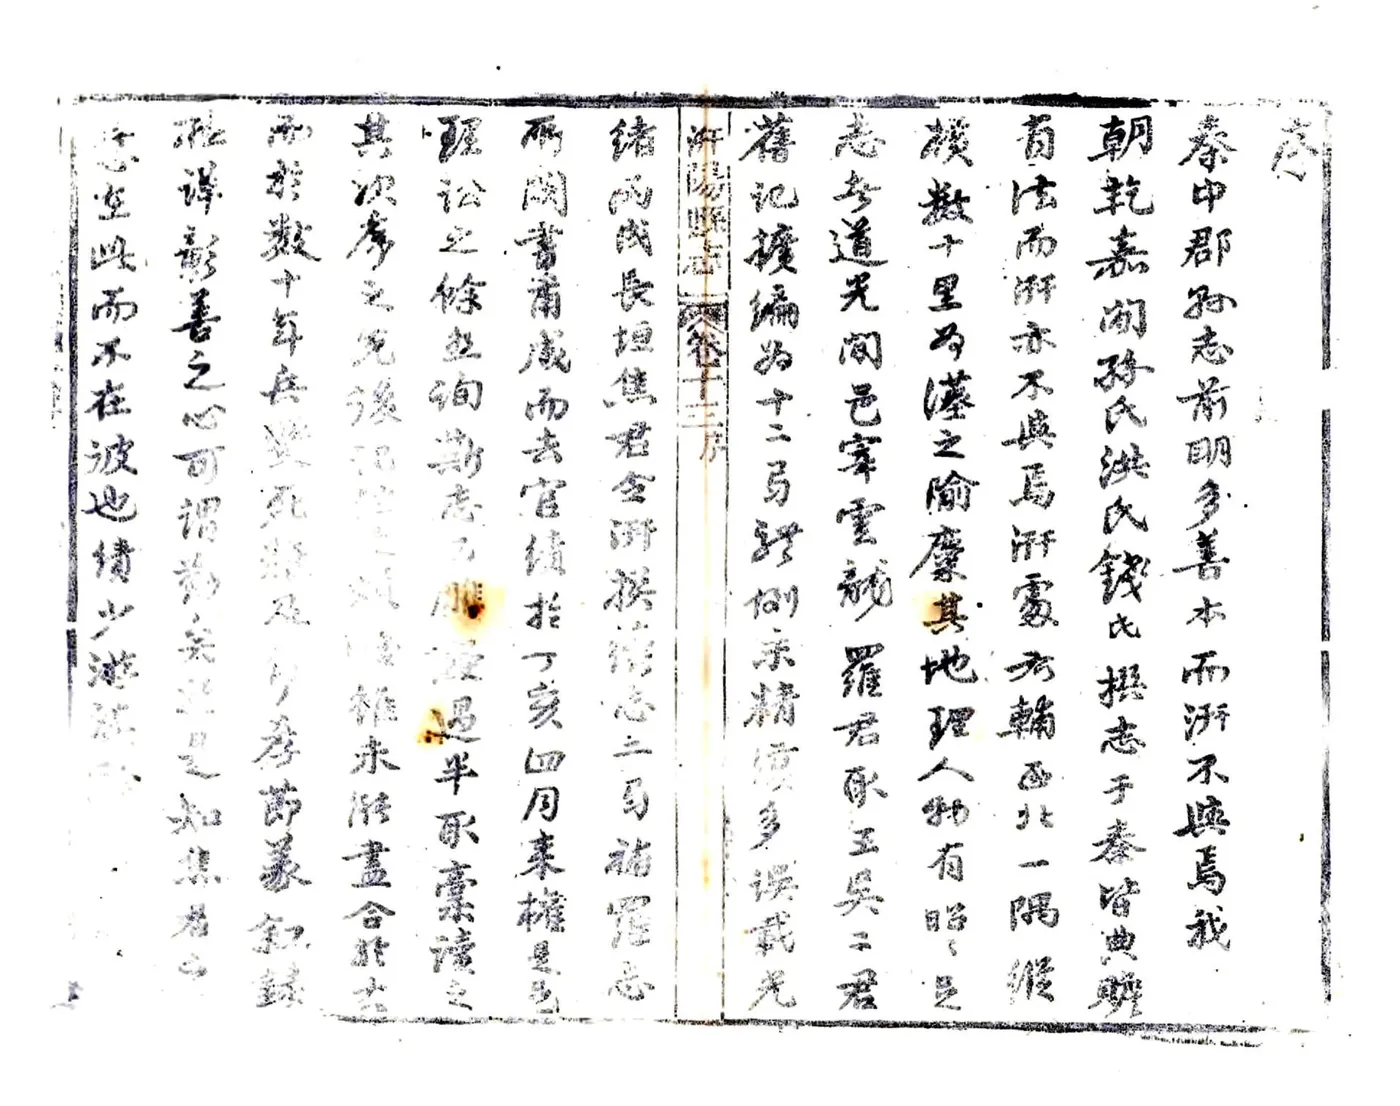 序
秦中郡縣志前明多善本而汧不與焉我
朝乾嘉間孫氏洪氏錢氏撰志于秦皆典贍
有法而汧亦不與焉汧處右輔西北一隅縱
橫數十里為漢之隃糜其地理人物有昭昭足
志者道光間邑宰雲龍羅君取王吳二君
舊記擴編為十二局體例示精溟多誤載光
汧陽縣志 卷十三 序
緒丙戌長垣焦君令汧撰續志二局補羅志
所闕書甫成而去官績於丁亥四月來權是邑
理訟之餘念詢斯志已 過半取稾讀之
其次參之 後 雖未能盡合於古
而於數十年兵燹死難及 孝節義敘錄
詳彰善之心可謂勤矣 是知焦君之
志在此而不在彼也績少遊